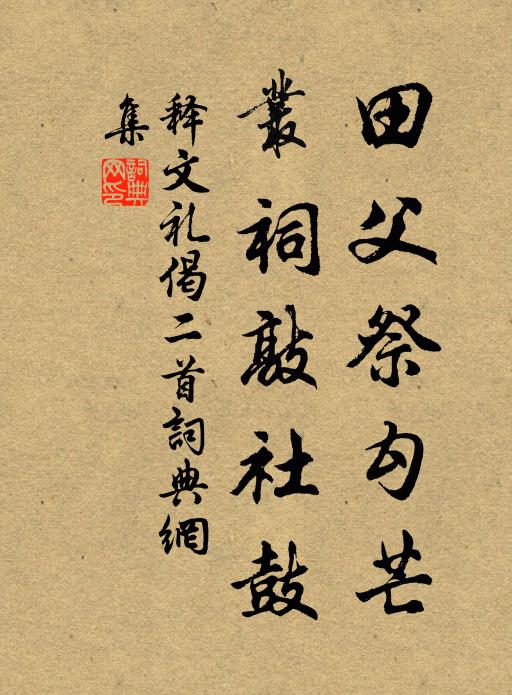 田父祭勾芒
叢祠敲社鼓
释文礼偈二首詞典網
集
詞典
网印